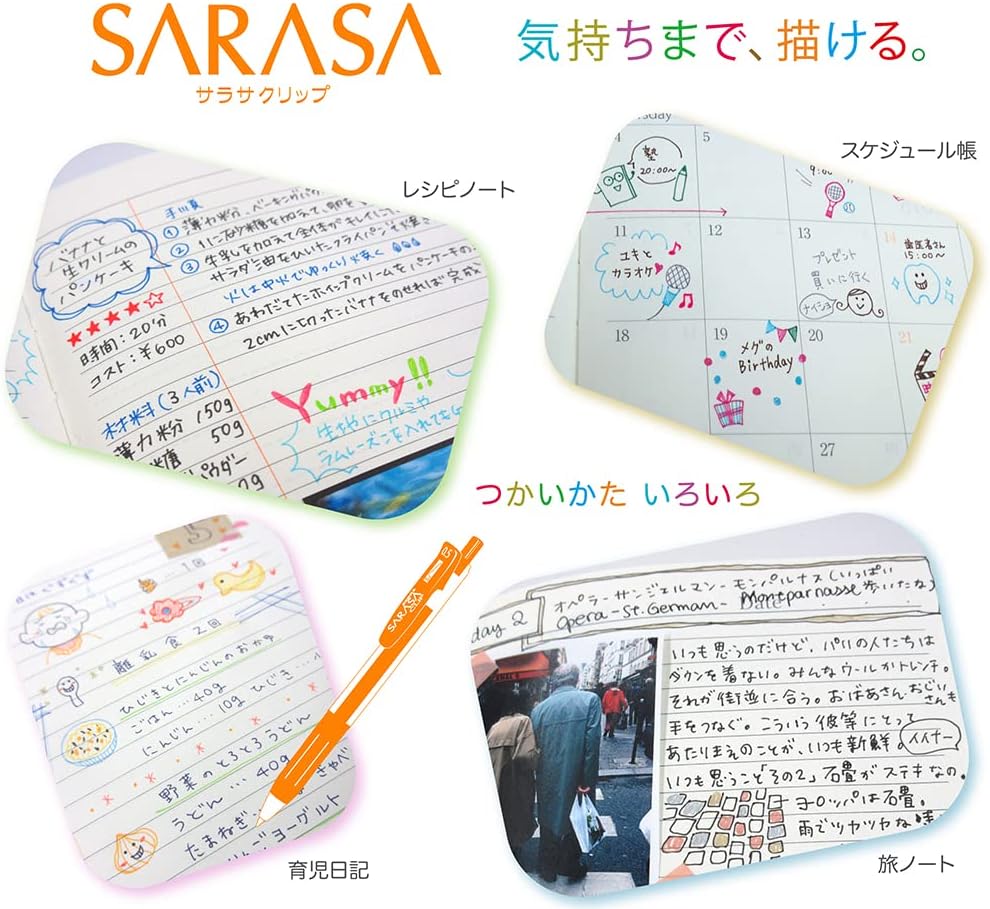 SARASA
サラサクリップ
気持ちまで、描ける。
レシピノート
バナナと
生クリームの
パンケーキ
時間:20分
コスト:¥600
材料(3人前)
薄力粉 150g
50g
パウダー
手順
① 薄力粉、ベーキングパ
②
③ 牛乳を加えて全体がキレイに
サラダ油をひいたフライパンで
火は中火でゆっくり
④ あわだてたホイップクリームをパンケーキの
2cmに切ったバナナをのせれば完成
Yummy!!
生地にクルミや
ラムレーズンを入れても
スケジュール帳
4
5
塾
20:00~
9:00~
11
12
13
14
ユキと
カラオケ
プレゼント
買いに行く
ナイショ
歯医者さん
15:00~
18
19
20
21
メグの
Birthday
27
つかいかた いろいろ
5
1回
離乳食 2回
ひじきとにんじんのおかゆ
ごはん…40g ひじき
にんじん…10g
野菜のとろとろうどん
うどん…40g きゃべ
たまねぎ
ヨーグルト
SARASA
0.5
育児日記
day 2
オペラーサンジェルマン-モンパルナス(いっぱい
歩いたな)
Opera-St.German-Montparnasse
Date
いつも思うのだけど、パリの人たちは
ダウンを着ない。みんなウールかトレンチ。
それが街並に合う。おばあさんおじいさんも
手をつなぐ。こういう彼等にとって
あたりまえのことが、いつも新鮮。イイナー
いつも思うこと「その2」石畳がステキなの。
ヨーロッパは石畳。
雨でツヤツヤな
旅ノート